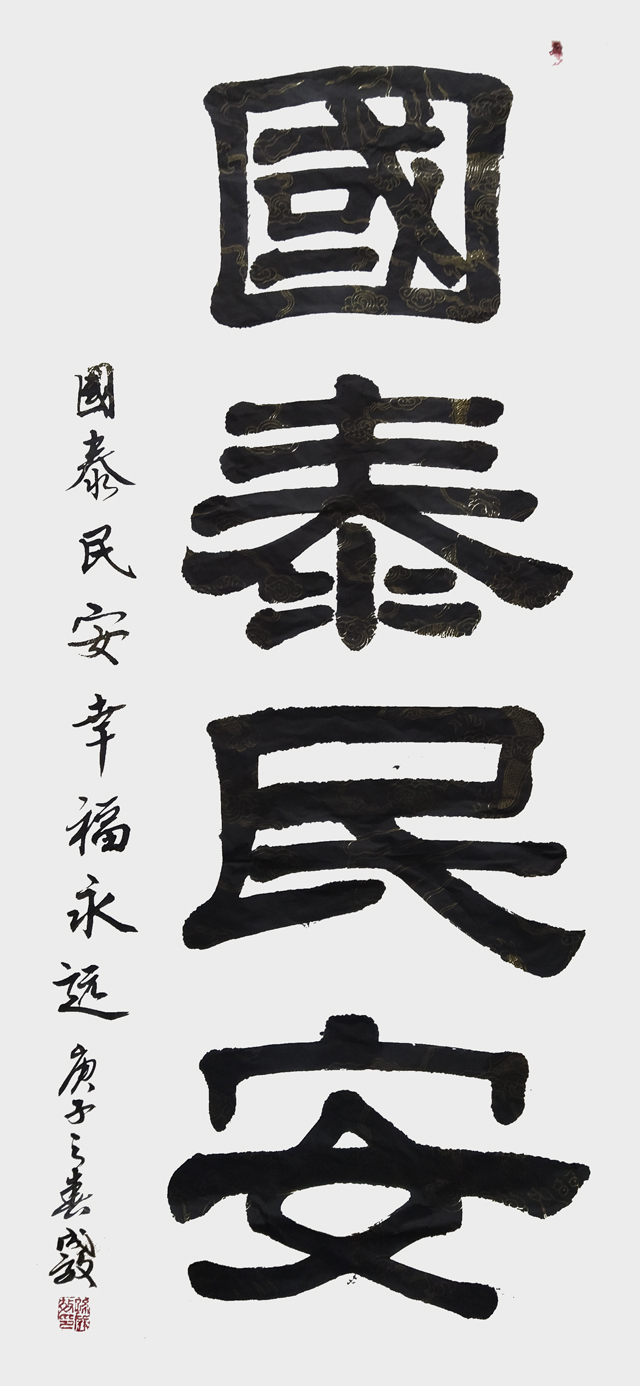 國泰民安
國泰民安幸福永远庚子之春